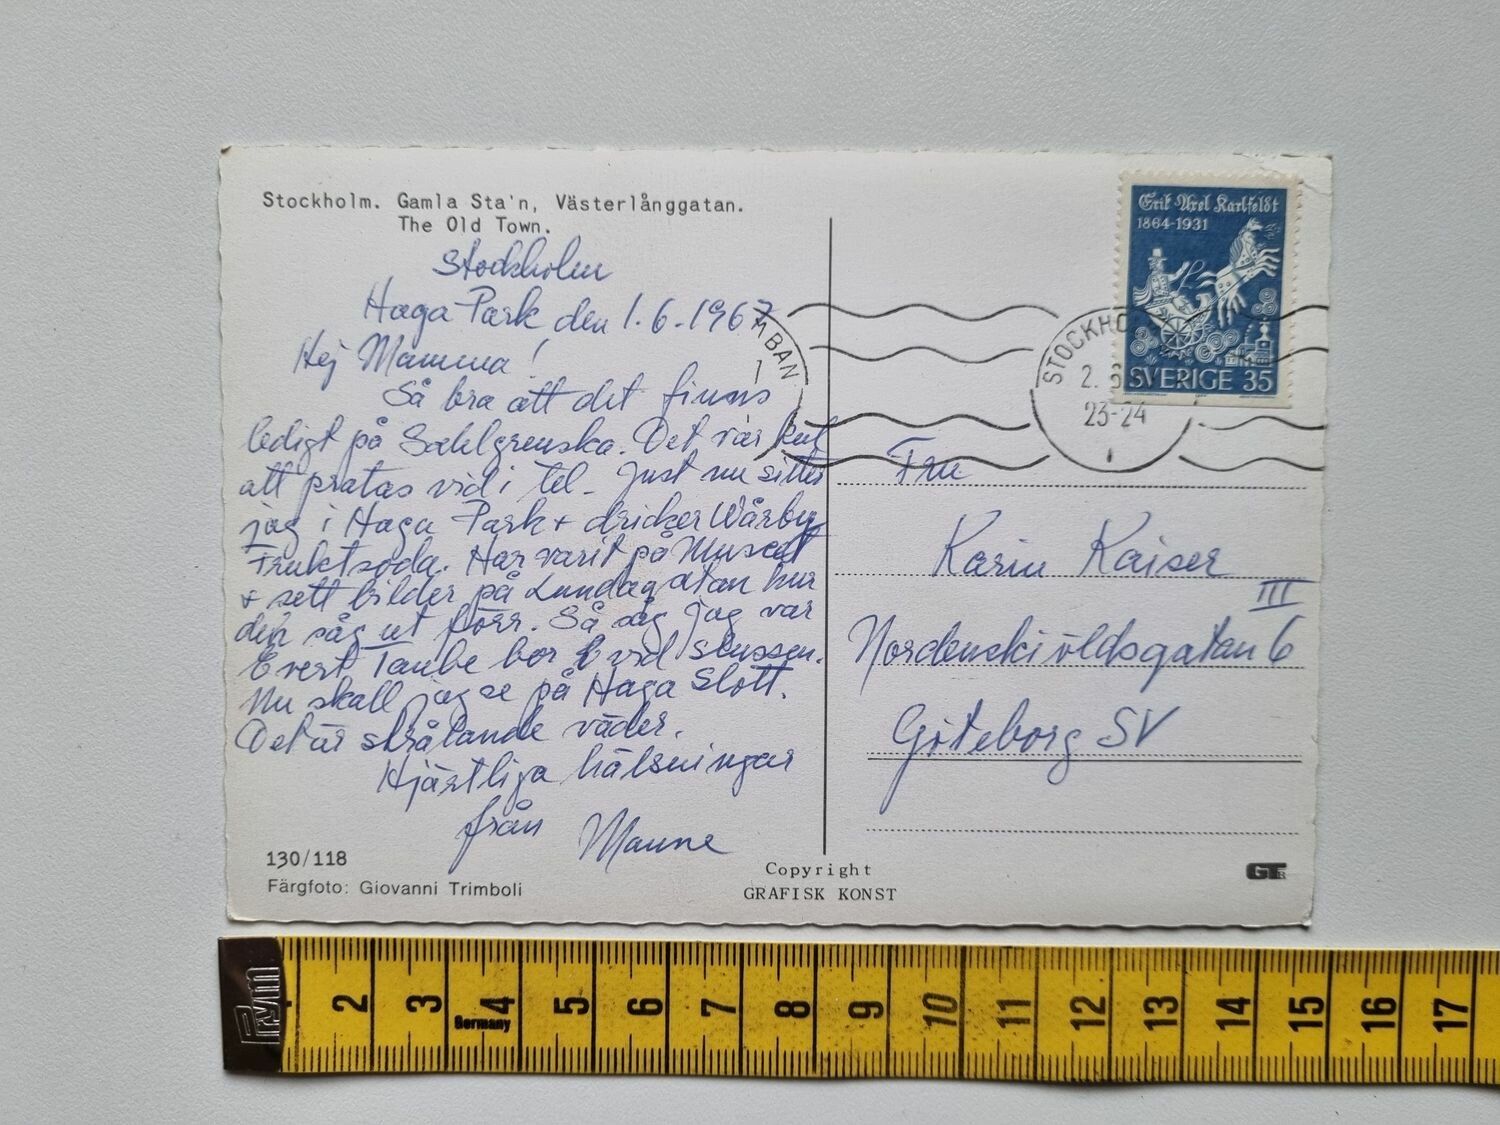 Stockholm. Gamla Sta'n, Västerlånggatan.
The Old Town.
Stockholm
Haga Park den 1.6.1967
Hej Mamma!
Så bra att det finns
ledigt på Sahlgrenska. Det var kul
att pratas vid i tel. Just nu sitter
jag i Haga Park + dricker Wårby
Fruktsoda. Har varit på Museet
+ sett bilder på Lundagatan hur
den såg ut förr. Så såg jag var
Evert Taube bor vid slussen.
Nu skall jag se på Haga Slott.
Det är strålande väder.
Hjärtliga hälsningar
från Manne
130/118
Färgfoto: Giovanni Trimboli
Copyright
GRAFISK KONST
Erik Axel Karlfeldt
1864-1931
SVERIGE 35
BAN
1
STOCKHO
2. 6
23-24
Fru
Karin Kaiser
III
Nordenskiöldsgatan 6
Göteborg SV
GT
Prym
2 3 4 5 6 7 8 9 10 11 12 13 14 15 16 17
Germany